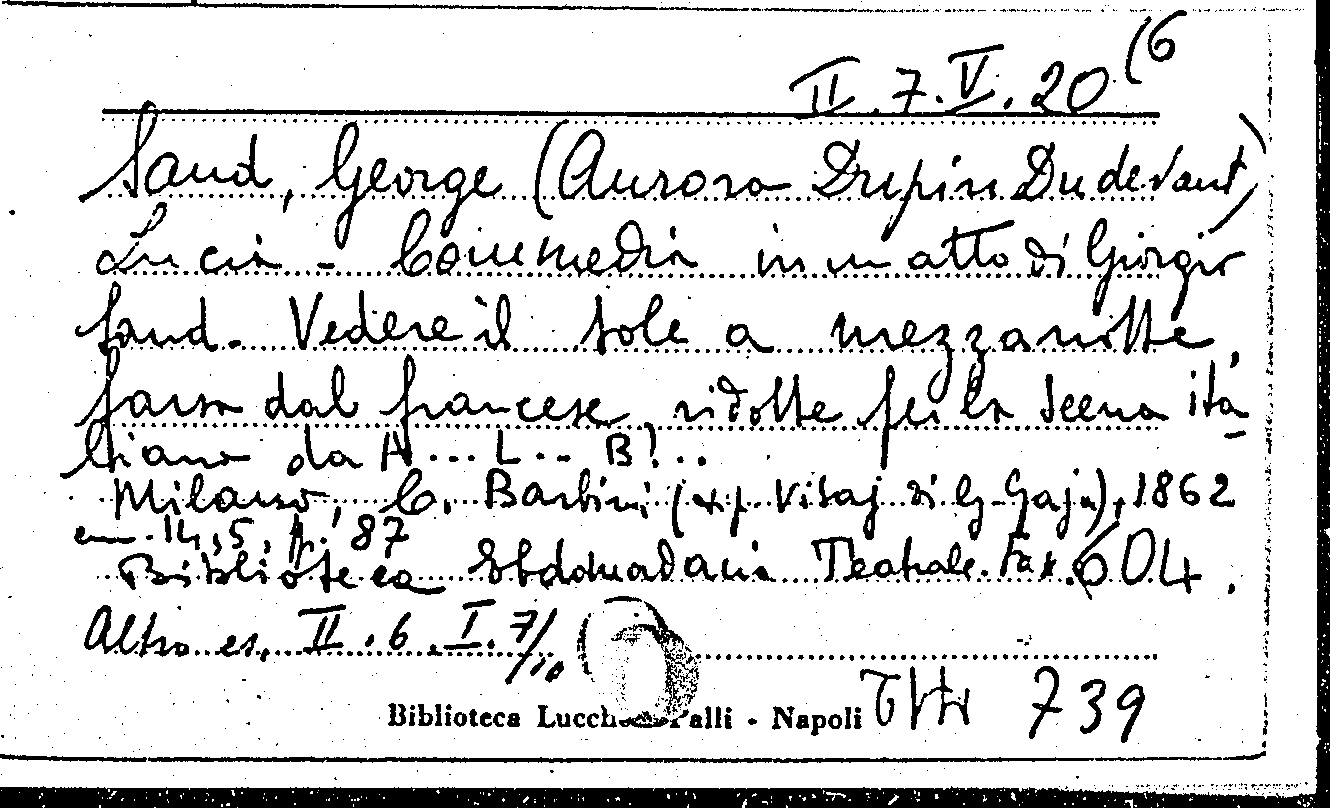 II.7.V.20(6
Sand, George (Aurora Dupin Dudevant)
Lucia - Commedia in un atto di Giorgio
Sand. Vedere il sole a mezzanotte,
farsa dal francese, ridotte per la scena ita
liana da A... L... B!..
Milano, C. Barbini, (tip. Visaj di G. Gaja), 1862
cm. 14,5, p. 87
Biblioteca Ebdomadaria Teatrale. Fax. 604.
Altro es. II.6.I.7/10
Biblioteca Lucchesi Palli - Napoli
739